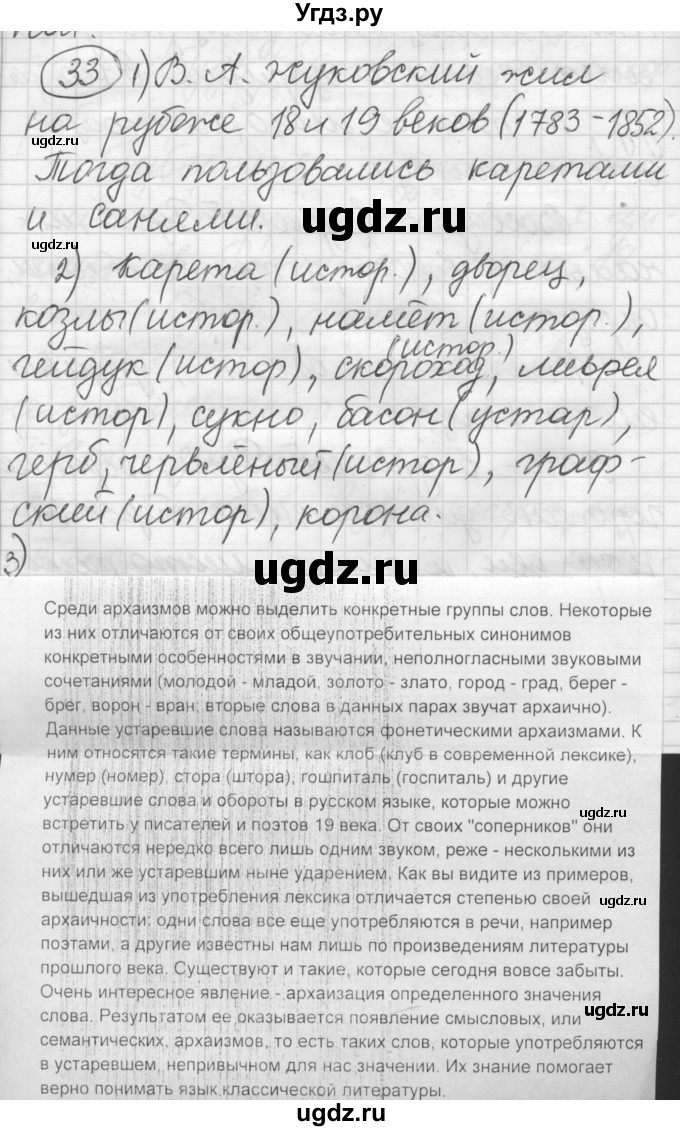 Угдз.ру
33 1) В. А. Жуковский жил
на рубеже 18 и 19 веков (1783-1852).
Тогда пользовались каретами
и санями.
2) Карета (истор.), дворец,
козлы (истор.), намёт (истор.),
гейдук (истор), скороход (истор.), ливрея
(истор), сукно, басон (устар),
герб, червлёный (истор), граф-
ский (истор), корона.
3)
Среди архаизмов можно выделить конкретные группы слов. Некоторые
из них отличаются от своих общеупотребительных синонимов
конкретными особенностями в звучании, неполногласными звуковыми
сочетаниями (молодой - младой, золото - злато, город - град, берег -
брег, ворон - вран; вторые слова в данных парах звучат архаично).
Данные устаревшие слова называются фонетическими архаизмами. К
ним относятся такие термины, как клоб (клуб в современной лексике),
нумер (номер), стора (штора), гошпиталь (госпиталь) и другие
устаревшие слова и обороты в русском языке, которые можно
встретить у писателей и поэтов 19 века. От своих "соперников" они
отличаются нередко всего лишь одним звуком, реже - несколькими из
них или же устаревшим ныне ударением. Как вы видите из примеров,
вышедшая из употребления лексика отличается степенью своей
архаичности: одни слова все еще употребляются в речи, например
поэтами, а другие известны нам лишь по произведениям литературы
прошлого века. Существуют и такие, которые сегодня вовсе забыты.
Очень интересное явление - архаизация определенного значения
слова. Результатом ее оказывается появление смысловых, или
семантических, архаизмов, то есть таких слов, которые употребляются
в устаревшем, непривычном для нас значении. Их знание помогает
верно понимать язык классической литературы.
ugdz.ru
ugdz.ru
ugdz.ru
ugdz.ru
ugdz.ru
ugdz.ru
ugdz.ru
ugdz.ru
ugdz.ru
ugdz.ru
ugdz.ru